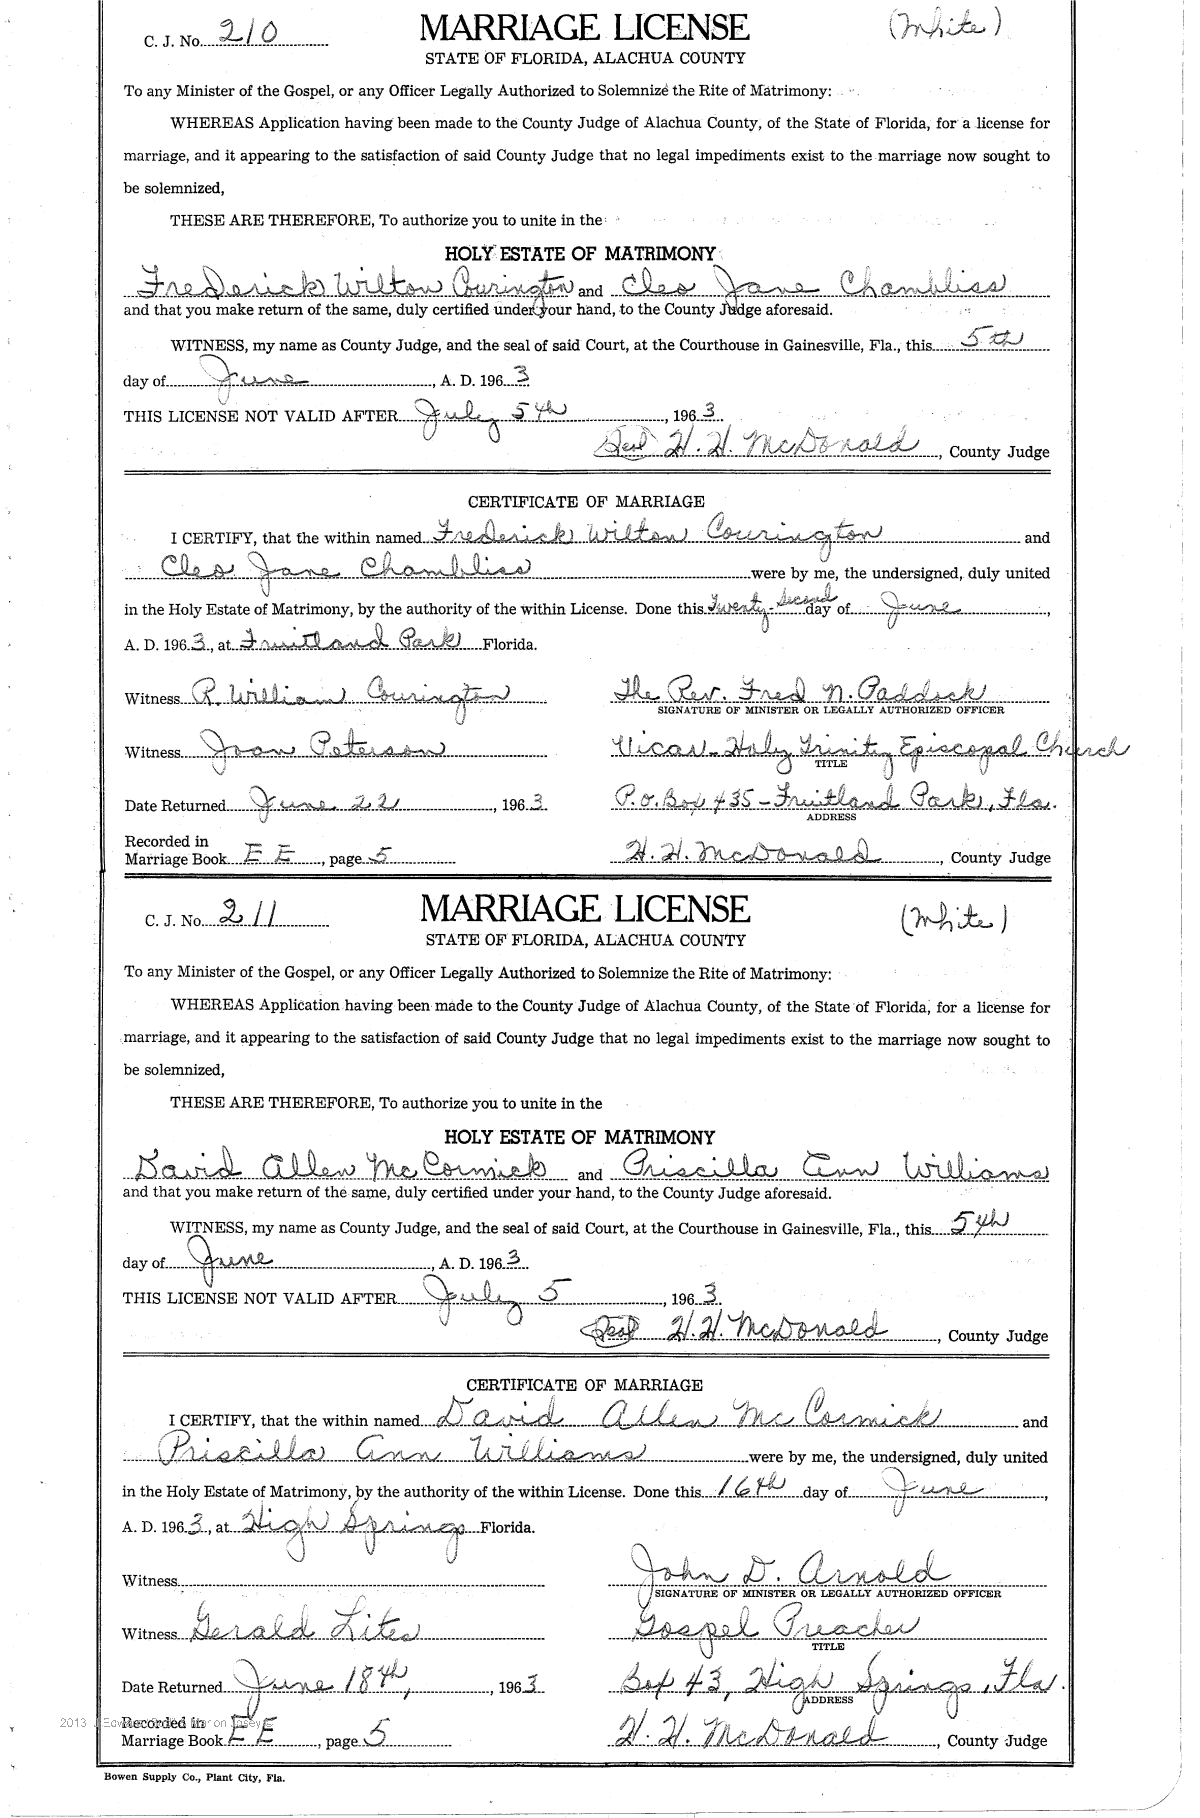 C. J. No. 210 MARRIAGE LICENSE (White)
STATE OF FLORIDA, ALACHUA COUNTY
To any Minister of the Gospel, or any Officer Legally Authorized to Solemnize the Rite of Matrimony:
WHEREAS Application having been made to the County Judge of Alachua County, of the State of Florida, for a license for
marriage, and it appearing to the satisfaction of said County Judge that no legal impediments exist to the marriage now sought to
be solemnized,
THESE ARE THEREFORE, To authorize you to unite in the
HOLY ESTATE OF MATRIMONY
Frederick Wilton Courington and Cleo Jane Chambliss
and that you make return of the same, duly certified under your hand, to the County Judge aforesaid.
WITNESS, my name as County Judge, and the seal of said Court, at the Courthouse in Gainesville, Fla., this 5th
day of June, A. D. 1963
THIS LICENSE NOT VALID AFTER July 5th, 1963.
Seal H. H. McDonald, County Judge
CERTIFICATE OF MARRIAGE
I CERTIFY, that the within named Frederick Wilton Courington and
Cleo Jane Chambliss were by me, the undersigned, duly united
in the Holy Estate of Matrimony, by the authority of the within License. Done this Twenty-Second day of June,
A. D. 1963, at Fruitland Park Florida.
Witness R. William Courington The Rev. Fred N. Paddock
SIGNATURE OF MINISTER OR LEGALLY AUTHORIZED OFFICER
Witness Joan Peterson Vicar-Holy Trinity Episcopal Church
TITLE
Date Returned June 22, 1963 P.O. Box 435-Fruitland Park, Fla.
ADDRESS
Recorded in
Marriage Book E E, page 5 H. H. McDonald, County Judge
C. J. No. 211 MARRIAGE LICENSE (White)
STATE OF FLORIDA, ALACHUA COUNTY
To any Minister of the Gospel, or any Officer Legally Authorized to Solemnize the Rite of Matrimony:
WHEREAS Application having been made to the County Judge of Alachua County, of the State of Florida, for a license for
marriage, and it appearing to the satisfaction of said County Judge that no legal impediments exist to the marriage now sought to
be solemnized,
THESE ARE THEREFORE, To authorize you to unite in the
HOLY ESTATE OF MATRIMONY
David Allen McCormick and Priscilla Ann Williams
and that you make return of the same, duly certified under your hand, to the County Judge aforesaid.
WITNESS, my name as County Judge, and the seal of said Court, at the Courthouse in Gainesville, Fla., this 5th
day of June, A. D. 1963.
THIS LICENSE NOT VALID AFTER July 5, 1963.
Seal H. H. McDonald, County Judge
CERTIFICATE OF MARRIAGE
I CERTIFY, that the within named David Allen McCormick and
Priscilla Ann Williams were by me, the undersigned, duly united
in the Holy Estate of Matrimony, by the authority of the within License. Done this 16th day of June,
A. D. 1963, at High Springs Florida.
Witness John D. Arnold
SIGNATURE OF MINISTER OR LEGALLY AUTHORIZED OFFICER
Witness Gerald Lites Gospel Preacher
TITLE
Date Returned June 18th, 1963 Box 43, High Springs, Fla.
ADDRESS
2013 Recorded in
Marriage Book E E, page 5 H. H. McDonald, County Judge
Bowen Supply Co., Plant City, Fla.